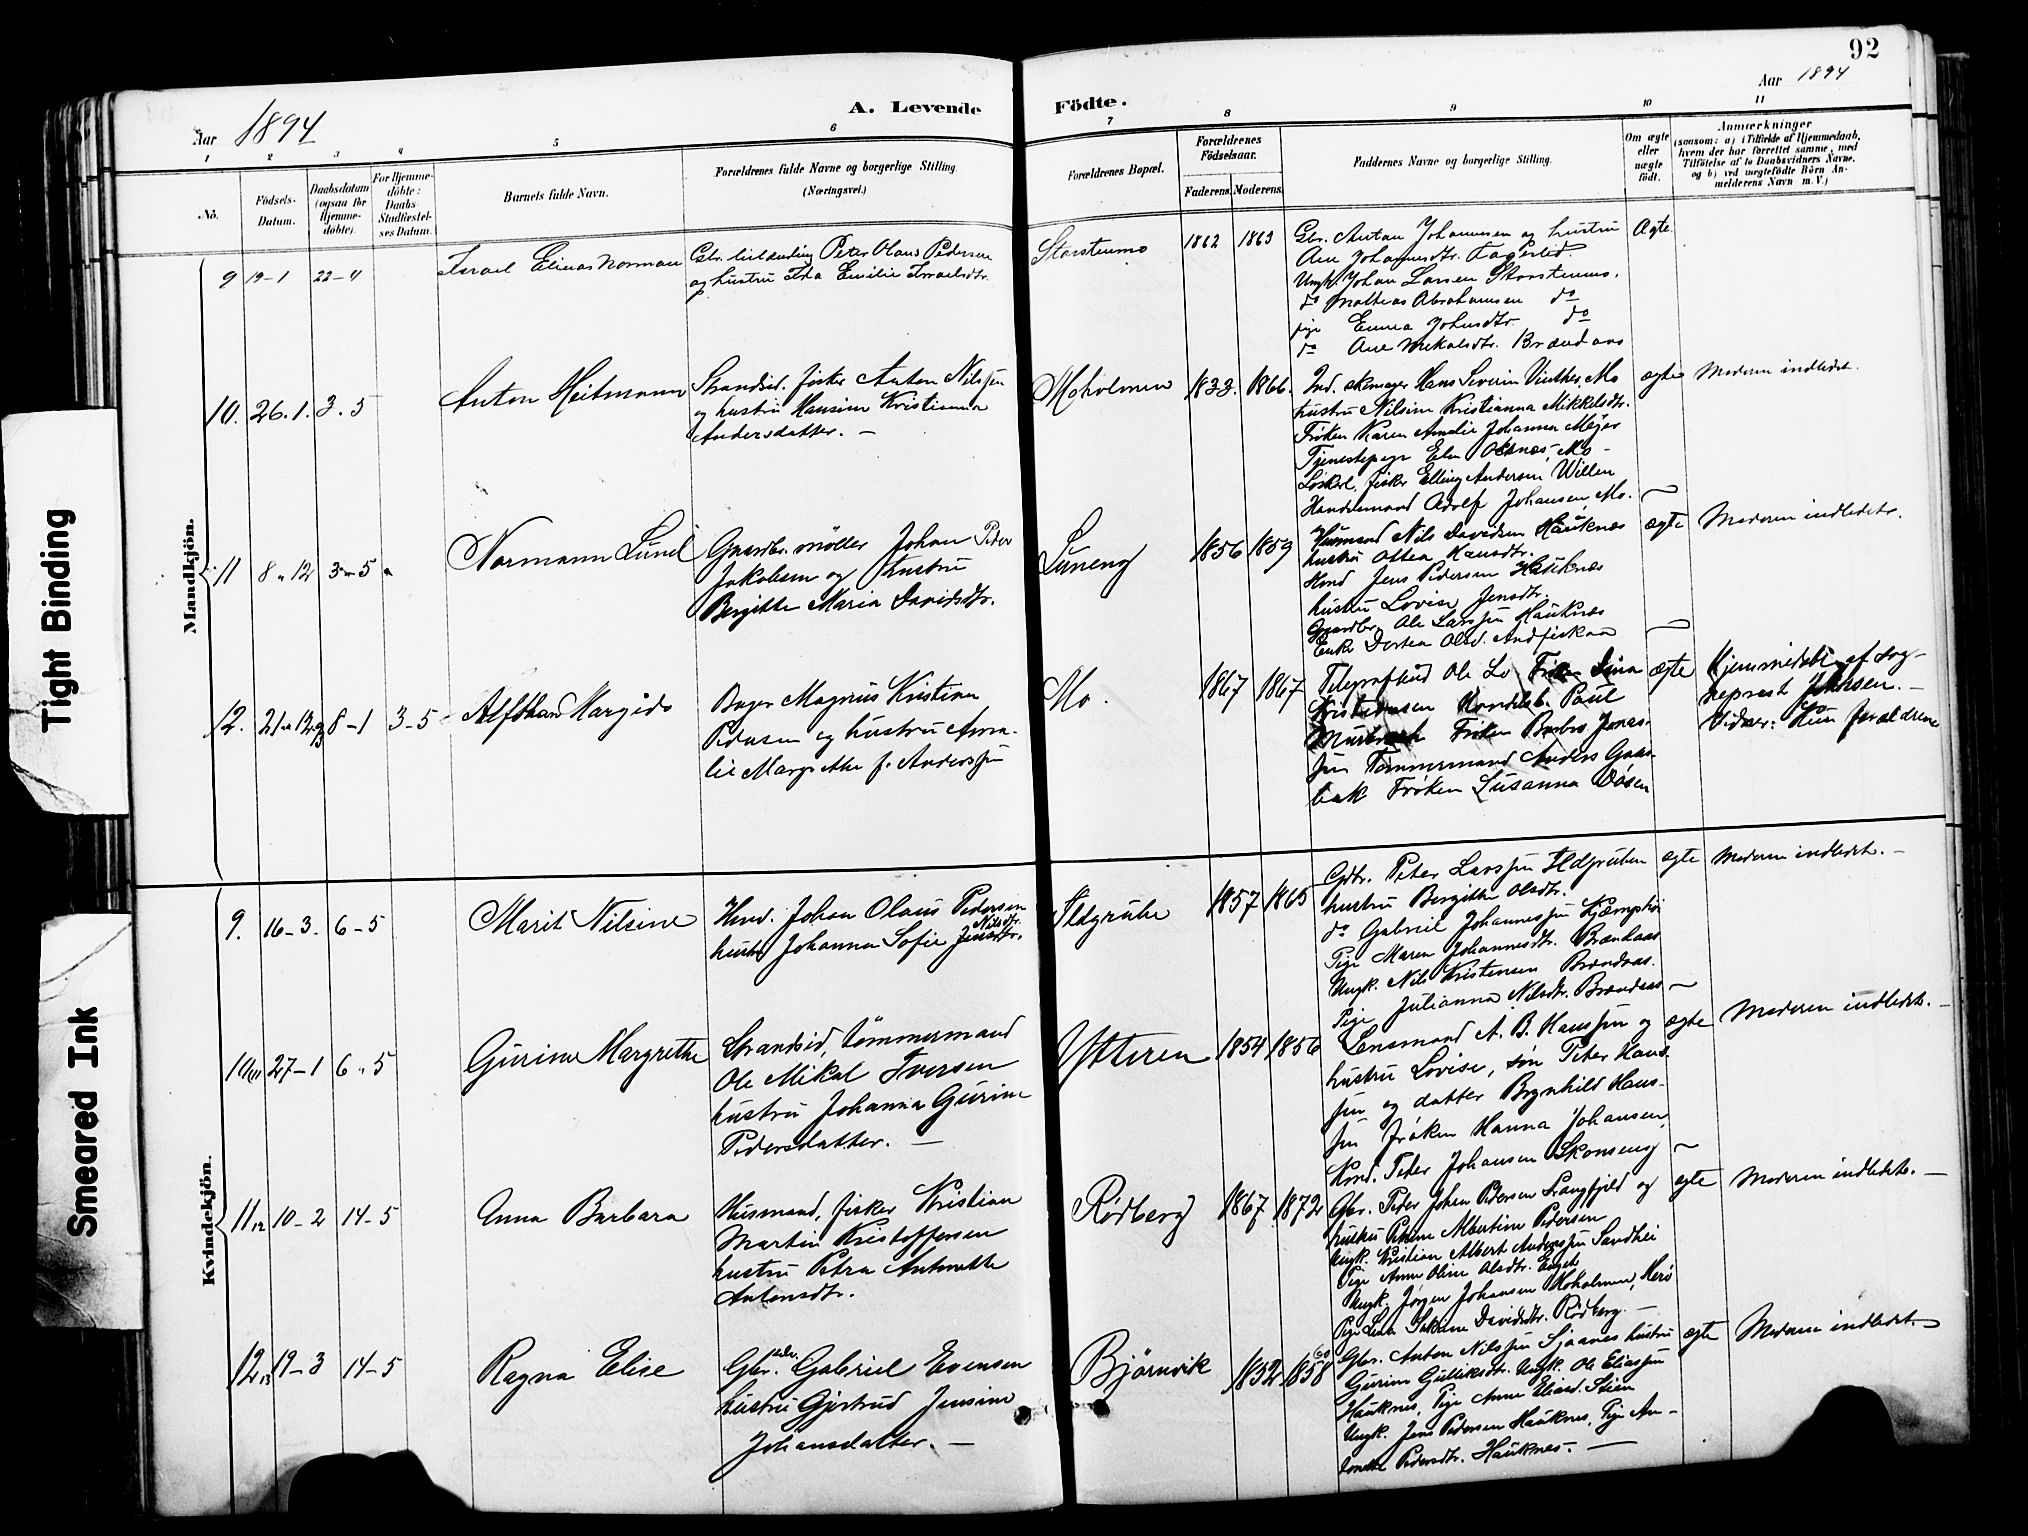 92
Aar 1894
A. Levende Födte.
Aar 1894
1 2 3 4 5 6 7 8 9 10 11
No.
Födsels-Datum.
Daabsdatum (ogsaa for Hjemme-döbte)
For Hjemme-döbte: Daabs-Stadfæstel-ses Datum.
Barnets fulde Navn.
Forældrenes fulde Navne og borgerlige Stilling.
(Næringsvei.)
Forældrenes Bopæl.
Forældrenes Födselsaar.
Faderens. Moderens.
Faddernes Navne og borgerlige Stilling.
Om ægte eller uægte födt.
Anmærkninger
(saasom: a) i Tilfælde af Hjemmedaab,
hvem der har forrettet samme, med
Tilföielse af to Daabsvidners Navne.
og b) ved uægtefödte Börn An-
melderens Navn m. V.)
Tight Binding
Smeared Ink
Mandkjön.
9 19-1 22-4
Israel Elinas Norman
Peter Olaus Pedersen
og hustru Ida Emilie Israelsdtr.
Storstenmo
1862 1863
Gbr. Anton Johannesen og hustru
Ane Johannesdtr. Fagerlid.
Ungk. Johan Larsen Storstenmo.
do Mathias Abrahamsen do
pige Emma Johnsdtr. do
do Ane Mikalsdtr. Brændaas
Ægte
10. 26.1. 3.5
Anton Heitmann
Strandsid. fisker Anton Nilssen
og hustru Hansine Kristianna
Andersdatter. —
Moholmen
1833. 1866.
Ind. skomager Hans Severin Vinther, Mo
hustru Nilsine Kristianna Mikkelsdtr.
Frøken Karen Amalie Johanna Mejer
Tjenestepige Elen Mo
Løskerl, fisker Elling Andersen Willen
Handelsmand Adolf Johansen, Mo.
ægte
Moderen indledet.
11 8-12 3-5
Normann Lund
Gaardbr. møller Johan Peder
Jakobsen og hustru
Bergitte Maria Davidsdtr.
Luneng
1856 1859
Husmand Nils Davidsen Hauknes
hustru Ottea Hansdtr.
Hmd Jens Pedersen Hauknes
hustru Lovise Jensdtr.
Gaardbr. Ole Larssen Hauknes
Enke Dortea Olsd. Andfiskaa
ægte
Moderen indledet.
12. 21-12 93 8-1 3-5
Margido
Bager Magnus Kristian
Pedersen og hustru Ama-
lie Margrethe f. Anderssen
Mo.
1867 1867
Telegrafbud Ole Lo Frøken Lina
Kristensen Handelsb. Paul
Frøken Barbro Jonas-
sen Tømmermand Anders Graa-
bæk Frøken Susanna Dosen
ægte
Hjemmedøbt af sog-
neprest Johnsen.
Vidner: Kun forældrene
Kvindekjön.
9. 16-3. 6-5
Marit Nilsine
Hmd. Johan Olaus Pedersen
hustru Johanna Sofie Jensdtr. Nilsdtr.
Ildgrube
1857 1865
Gdbr. Peter Larssen Ildgruben
hustru Bergitte Olsdtr.
do Gabriel Johannessen
Pige Maren Johannesdtr. Brændaas
Ungk. Nils Kristensen Brændaas.
Pige Julianna Nilsdtr. Brændaas
ægte
Moderen indledet. —
10 27-1 6-5
Gurine Margrethe
Strandsid, tømmermand
Ole Mikal Iversen
hustru Johanna Gurine
Pedersdatter. —
Ytteren
1854 1856
Lensmand A. B. Hanssen og
hustru Lovise, søn Peter Hans-
sen og datter Brynhild Hans-
sen frøken Hanna Johansen,
Kond. Peter Johansen Skonseng
ægte
Moderen indledet. —
11 12 10-2 14-5
Anna Barbara
Husmand, fisker Kristian
Martin Kristoffersen
hustru Petra Antonette
Antonsdtr.
Rødberg
1867 1872
Gbr. Peder Johan Pedersen Langfjeld og
hustru Petrine Albertine Pedersen
Ungk. Kristian Albert Anderssen Sandhei
Pige Anne Oline Olsdtr. Enget
Ungk. Jørgen Johansen Moholmen,
Pige Lina Davidsdtr. Rødberg. —
ægte
Moderen indledet. —
12 13 19-3 14-5
Ragna Elise
Gbr. Gabriel Evensen
hustru Gjertrud Jensine
Johansdatter. —
Björnvik
1852 1858
Gbr. Anton Nilssen Sjaanes hustru
Gurine Gulliksdtr. Ungk. Ole Eliassen
Hauknes, Pige Anne Eliasd. Stien
Ungk. Jens Pedersen Hauknes, Pige An-
tonette Pedersdtr. Hauknes. —
ægte
Moderen indledet.